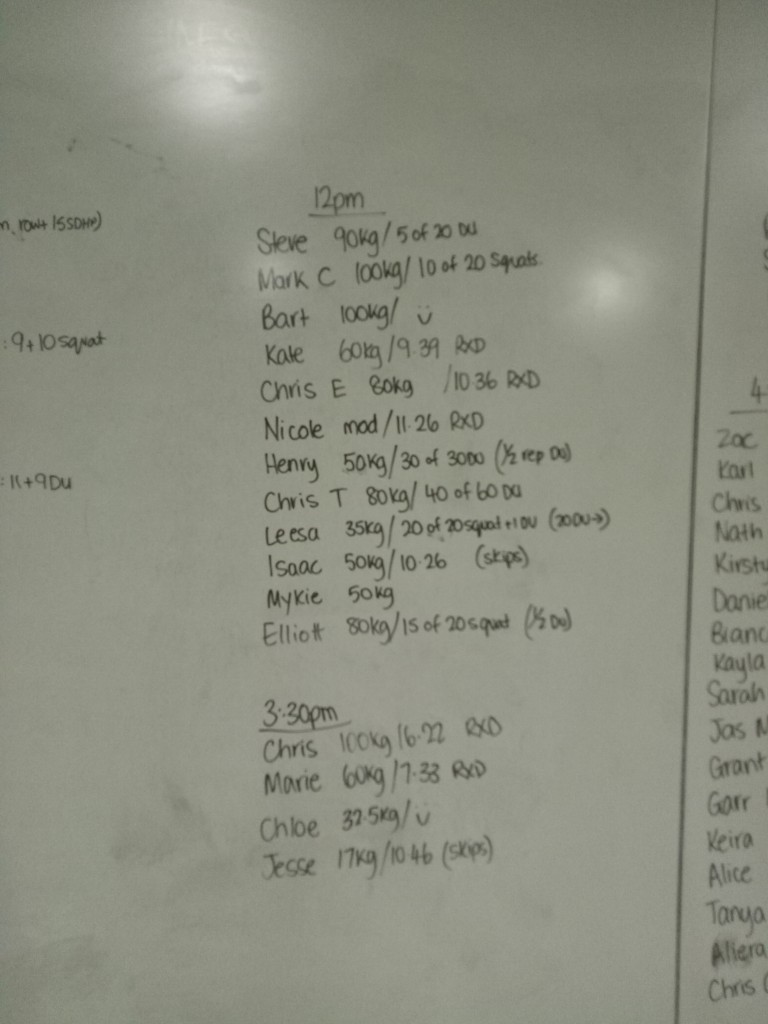 row+ 15SDHP)
: 9+10 squat
: 11+9DU
12pm
Steve 90kg/ 5 of 20 DU
Mark C 100kg/ 10 of 20 Squats.
Bart 100kg/ ü
Kate 60kg /9.39 RXD
Chris E 80kg /10.36 RXD
Nicole mod /11.26 RXD
Henry 50kg/30 of 30DU (1/2 rep DU)
Chris T 80kg/ 40 of 60 DU
Leesa 35kg/ 20 of 20squat+1DU (20DU→)
Isaac 50kg/10.26 (skips)
Mykie 50kg
Elliott 80kg/15 of 20squat (1/2 DU)
3:30pm
Chris 100kg /6.22 RXD
Marie 60kg /7.33 RXD
Chloe 32.5kg/ ü
Jesse 17kg/10.46 (skips)
4
Zac
Karl
Chris
Nath
Kirsty
Danie
Bianc
Kayla
Sarah
Jas M
Grant
Garr
Keira
Alice
Tanya
Allera
Chris